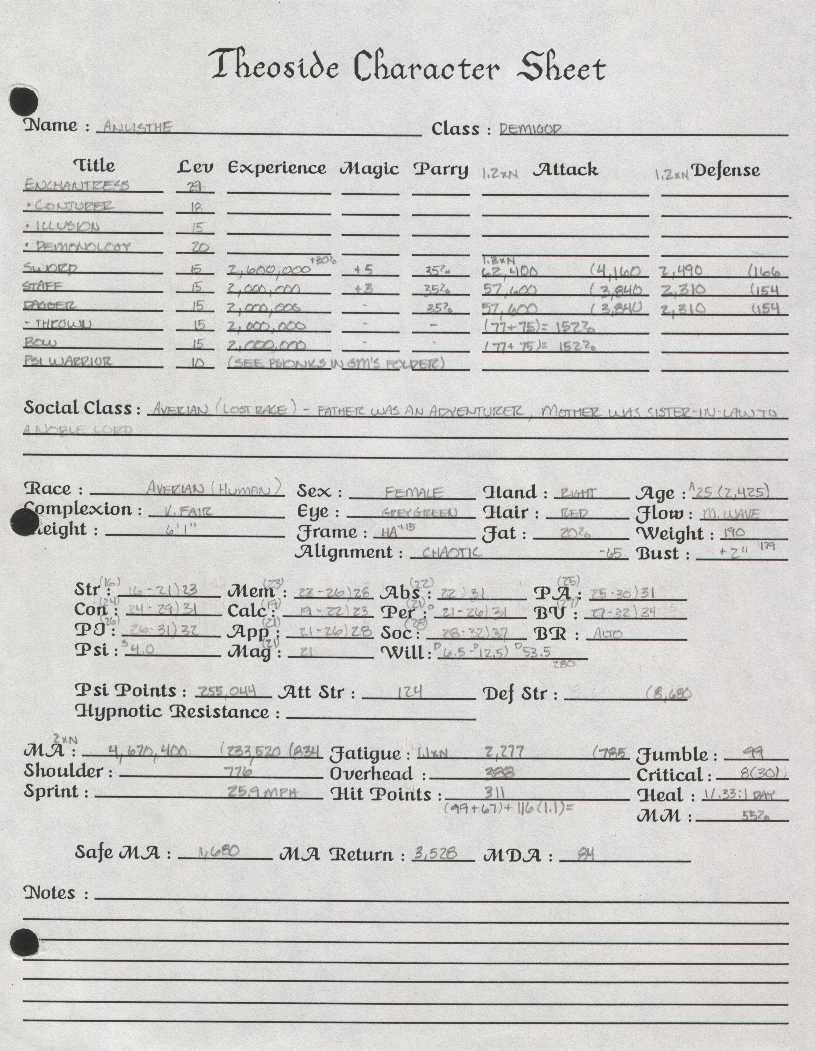 Theoside Character Sheet
Name : Class : DEMIGOD
Title Lev Experience Magic Parry 1.2xN Attack 1.2xN Defense
ENCHANTRESS 29
• CONJURER 18
• ILLUSION 15
• DEMONOLOGY 20
+30% 1.3xN
SWORD 15 2,600,000 +5 35% 62,400 (4,160 2,490 (166
STAFF 15 2,000,000 +3 35% 57,600 (3,840 2,310 (154
DAGGER 15 2,000,000 - 35% 57,600 (3,840 2,310 (154
- THROWN 15 2,000,000 - - (77+75)= 152%
BOW 15 2,000,000 - - (77+75)= 152%
PSI WARRIOR 10 (SEE PSIONICS IN GM'S FOLDER)
Social Class : AVERIAN (LOST RACE) - FATHER WAS AN ADVENTURER, MOTHER WAS SISTER-IN-LAW TO
A NOBLE LORD
Race : AVERIAN (HUMAN) Sex : FEMALE Hand : RIGHT Age : A25 (2,425)
Complexion : V. FAIR Eye : GREY GREEN Hair : RED Flow : M. WAVE
Height : 6'1" Frame : HA+15 Fat : 20% Weight : 190
Alignment : CHAOTIC -65 Bust : +2" 179
(16) (23) (22) (25)
Str : 16-21)23 Mem : 22-26)28 Abs : 22)31 PA : 25-30)31
(24) (19) (21) (27)
Con : 24-29)31 Calc : 19-22)23 Per : 21-26)31 BU : 27-32)34
(26) (21) (28)
PJ : 26-31)32 App : 21-26)28 Soc : 28-32)37 BR : ALTO
(21)
Psi : 4.0 Mag : 21 Will : D6.5-D12.5) D53.5
280
Psi Points : 255,044 Att Str : 124 Def Str : (8,680
Hypnotic Resistance :
2xN
MA : 4,670,400 (233,520 (834 Fatigue : 1.1xN 2,277 (785 Fumble : 99
Shoulder : 776 Overhead : 388 Critical : 8(30)
Sprint : 25.9 MPH Hit Points : 311 Heal : 1/.33:1 DAY
(99+67)+116(1.1)= MM : 55%
Safe MA : 1,680 MA Return : 3,528 MDA : 84
Notes :